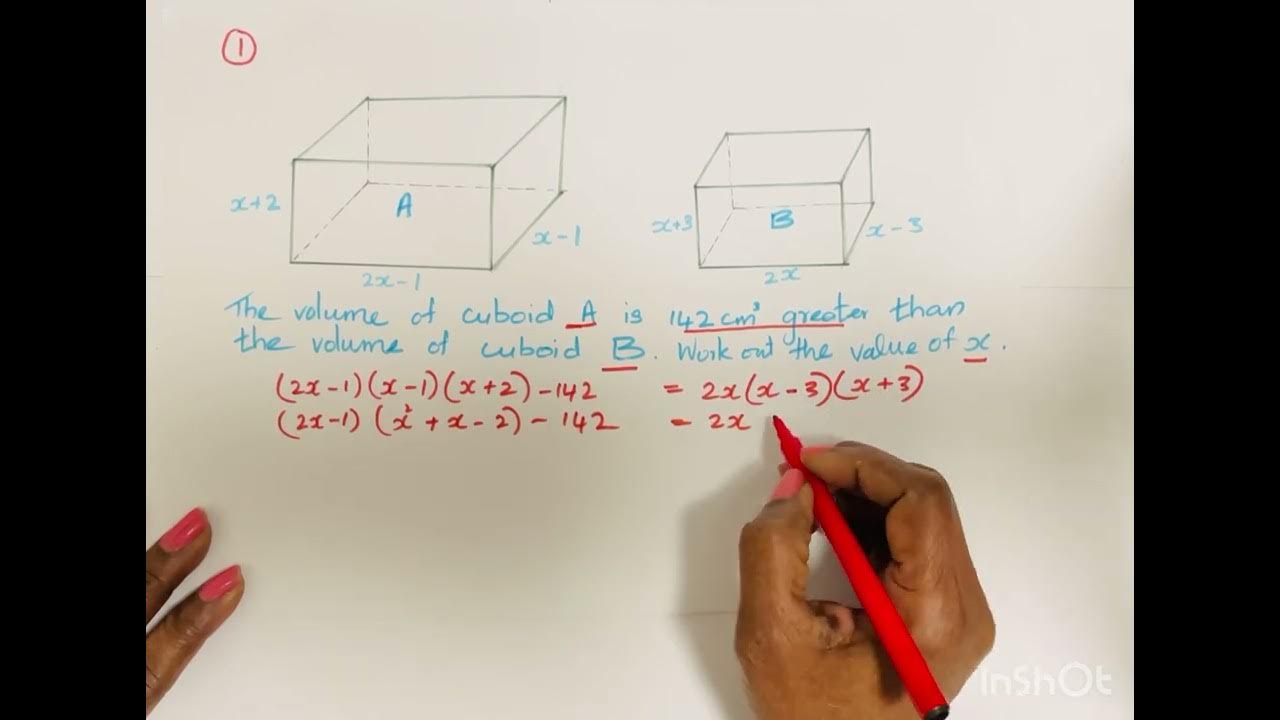 1
x+2
A
x-1
2x-1
x+3
B
x-3
2x
The volume of cuboid A is 142cm³ greater than
the volume of cuboid B. Work out the value of x.
(2x-1)(x-1)(x+2)-142 = 2x(x-3)(x+3)
(2x-1)(x²+x-2)-142 = 2x
InShOt